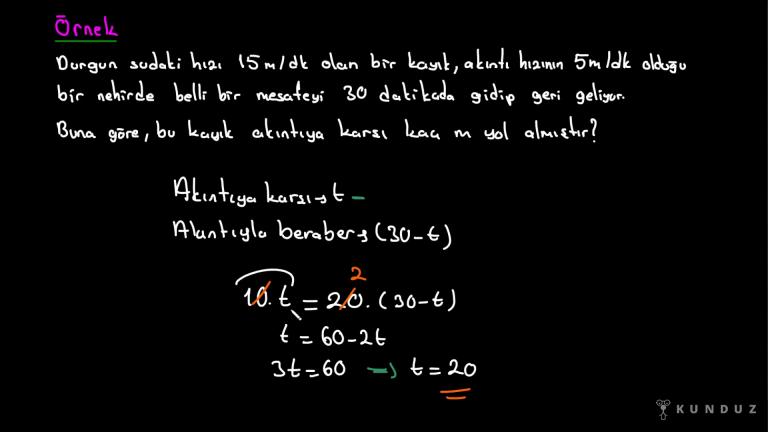 Örnek
Durgun sudaki hızı 15m/dk olan bir kayık, akıntı hızının 5m/dk olduğu
bir nehirde belli bir mesafeyi 30 dakikada gidip geri geliyor.
Buna göre, bu kayık akıntıya karşı kaç m yol almıştır?
Akıntıya karşı → t -
Akıntıyla beraber → (30-t)
2
10.t = 20.(30-t)
t = 60-2t
3t=60 → t=20
KUNDUZ